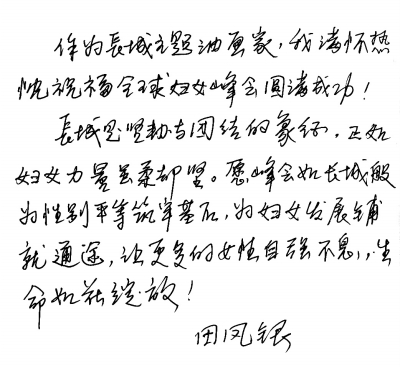 作为长城主题油画家，我满怀热
忱祝福全球妇女峰会圆满成功！
长城是坚韧与团结的象征，正如
妇女力量至柔却坚。愿峰会如长城般
为性别平等筑牢基石，为妇女发展铺
就通途，让更多的女性自强不息，生
命如花绽放！
田凤银